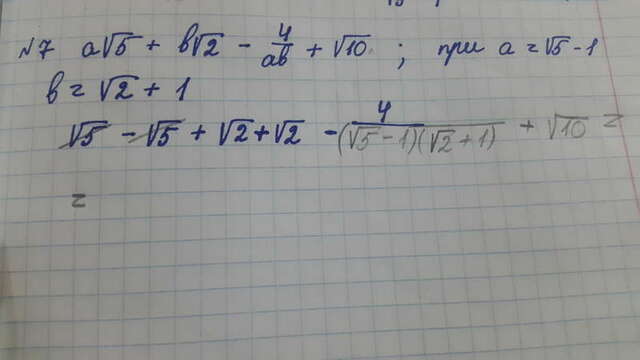 №7 a√5 + b√2 - 4/ab + √10 ; при a = √5 - 1
b = √2 + 1
√5 - √5 + √2 + √2 - 4/(√5 - 1)(√2 + 1) + √10 =
=